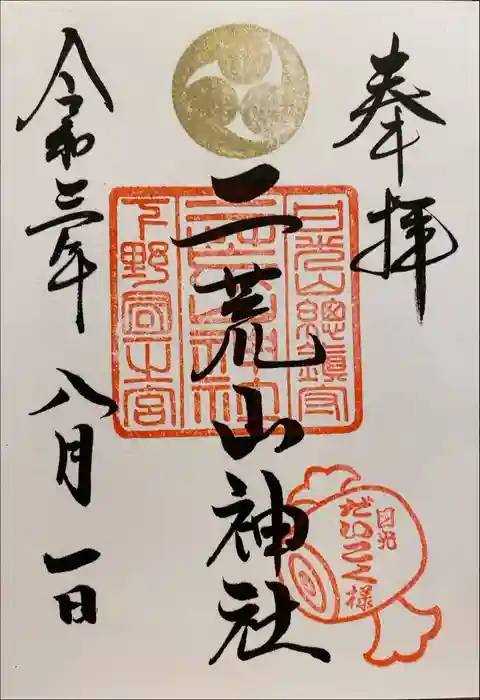 奉拝
日光山總鎮守
二荒山神社
下野國一之宮
日光
だいこく様
令和三年
八月一日